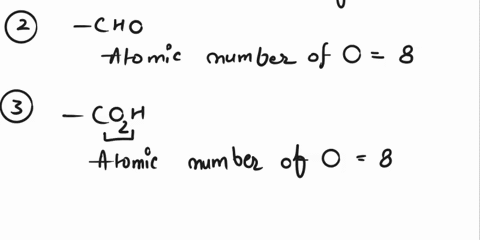 ② -CHO
Atomic number of O = 8
③ -CO₂H
Atomic number of O = 8